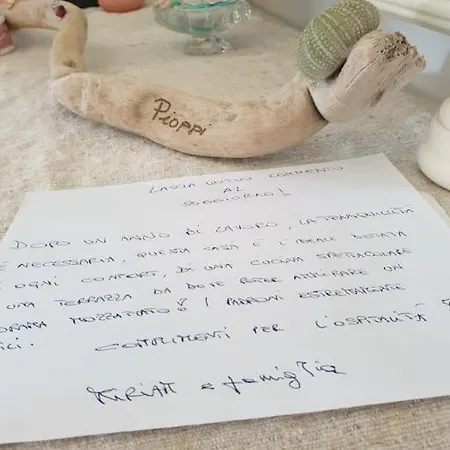 Pioppi
LASCIA UN TUO COMMENTO
AL
SOGGIORNO!
DOPO UN ANNO DI LAVORO, LA TRANQUILLITÀ
È NECESSARIA, QUESTA CASA È L'IDEALE DOTATA
OGNI CONFORT, DI UNA CUCINA SPETTACOLARE
UNA TERRAZZA DA DOVE POTER AMMIRARE UN
MOZZAFIATO! I PADRONI ESTREMAMENTE
COMPLIMENTI PER L'OSPITALITÀ
e famiglia